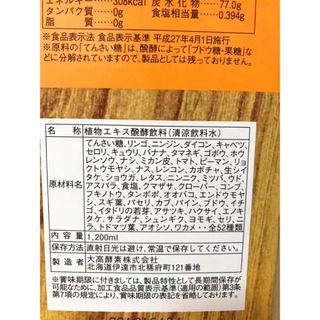 エネルギー 308kcal 炭水化物 77.0g
タンパク質 0g 食塩相当量 0.394g
脂質 0g
※食品表示法 食品表示基準 平成27年4月1日施行
※原料の「てんさい糖」は、醗酵によって「ブドウ糖・果糖」などに分解されていますので、製品としては残っておりません。
名称 植物エキス醗酵飲料(清涼飲料水)
原材料名
てんさい糖、リンゴ、ニンジン、ダイコン、キャベツ、
セロリ、キュウリ、バナナ、タマネギ、ゴボウ、ホウ
レンソウ、ナシ、ミカン皮、トマト、ピーマン、リョ
クトウモヤシ、ナス、レンコン、カボチャ、生シイ
タケ、ショウガ、レタス、ニラ、ニンニク、ミツバ、ウド、
アスパラ、食塩、クマザサ、クローバー、コンブ、
フキノトウ、タンポポ、オオバコ、エンドウモヤシ、
スギナ、蕗、ヨモギ、パセリ、カブ、パイン、ブドウ、イチゴ、
イタドリの若芽、アサツキ、ハクサイ、エノキ
タケ、サラダナ、シュンギク、ヨモギ、ユリネ、セリ
、トドマツ葉、アオシソ、ワカメ・・全52種類
内容量 1,200ml
保存方法 直射日光は避け、常温で保存してください。
製造者 大高酵素株式会社
北海道伊達市北稀府町121番地
※賞味期限に付きましては、製品特性として長期間保存が
可能なため、加工食品品質表示基準(適用の範囲)第3条
第7項の規定により、賞味期限表示を省略しております。